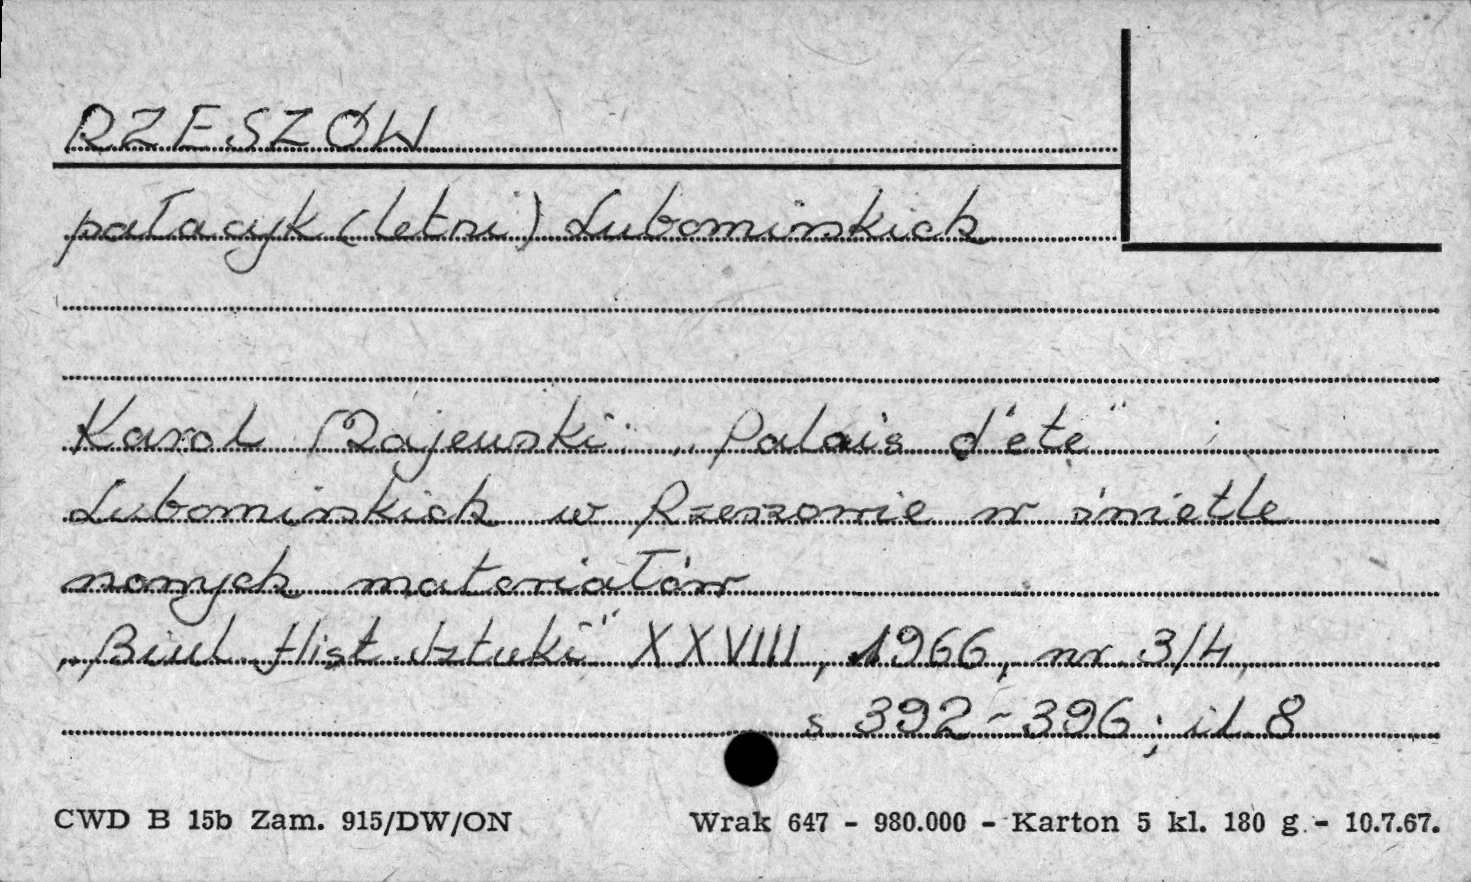 RZESZÓW
pałacyk (letni) Lubomirskich
Karol Majewski „Palais d'été"
Lubomirskich w Rzeszowie w świetle
nowych materiałów
„Biul Hist. Sztuki" XXVIII, 1966, nr 3/4,
s. 392-396; il. 8
CWD B 15b Zam. 915/DW/ON Wrak 647 - 980.000 - Karton 5 kl. 180 g. - 10.7.67.